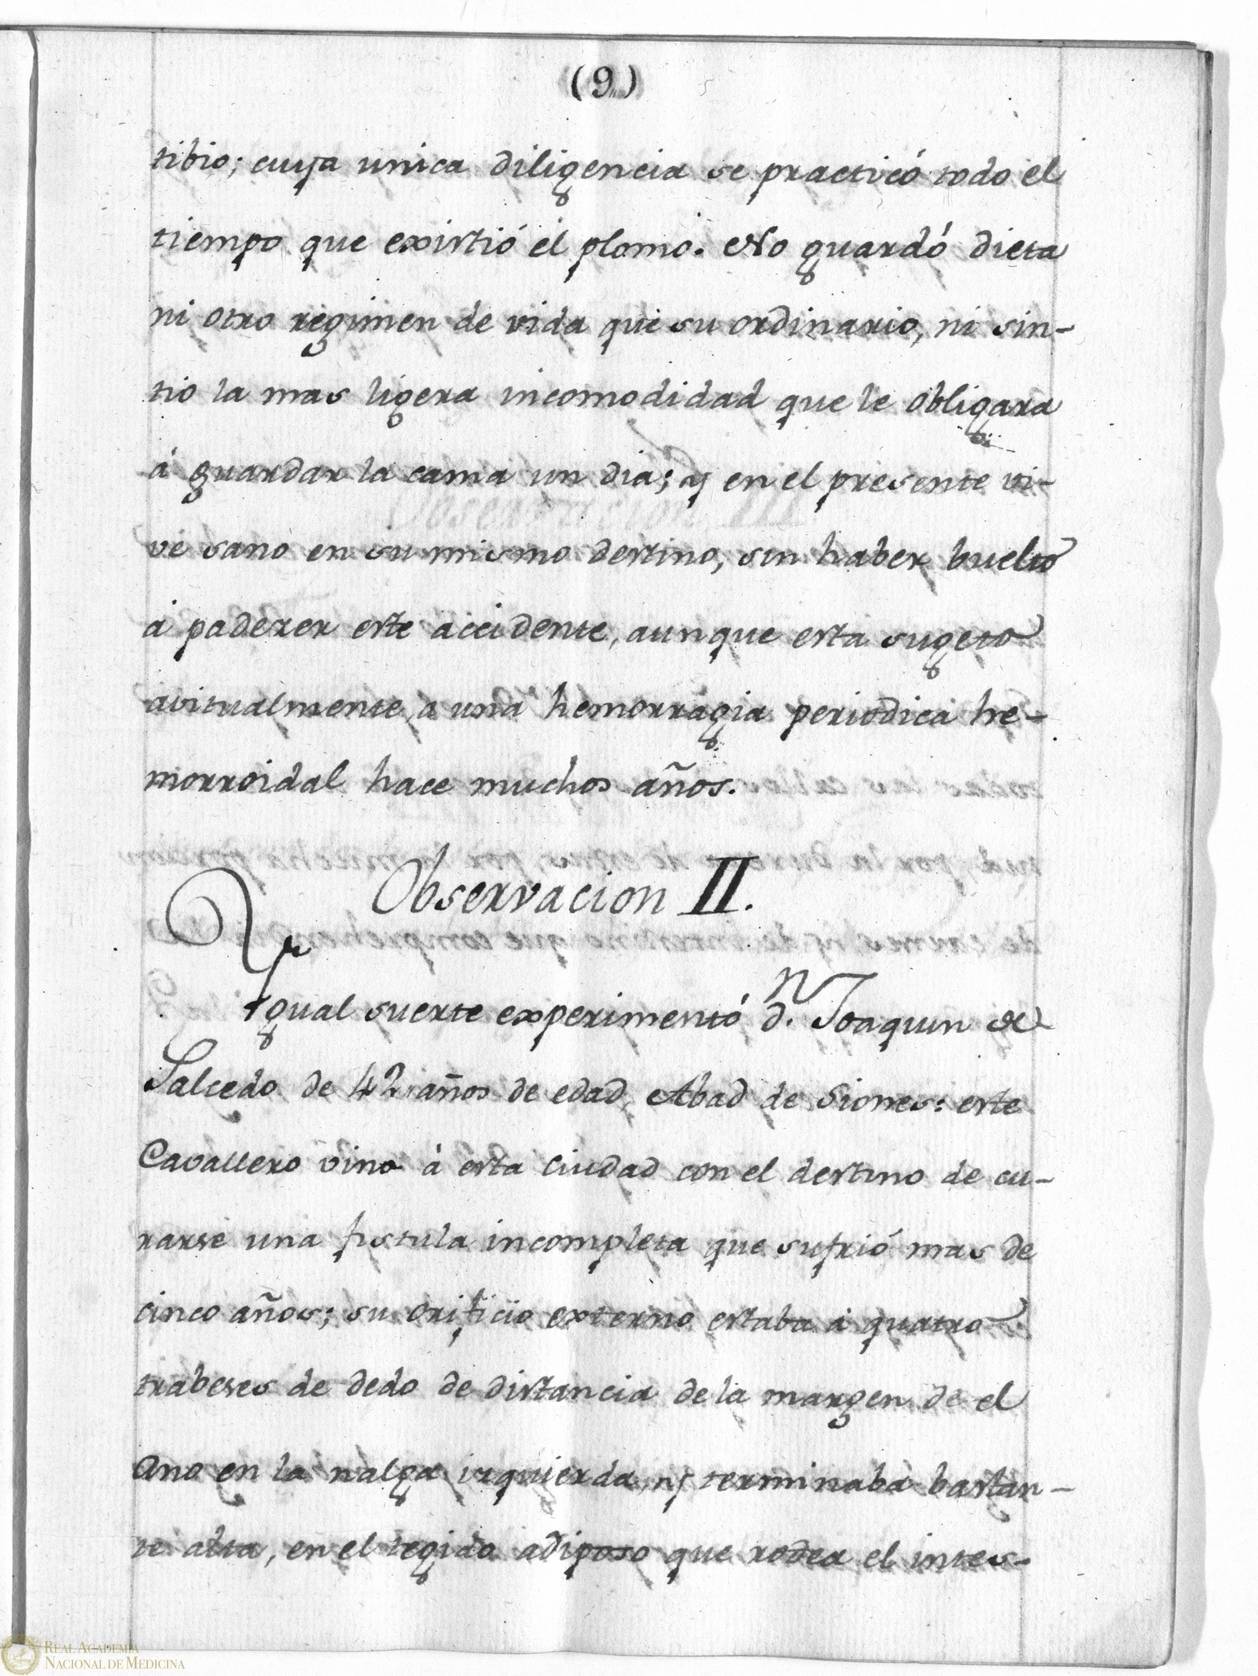 (9)
tibio; cuya unica diligencia se practicó todo el
tiempo que existió el plomo. No guardó dieta
ni otro regimen de vida que su ordinario, ni sin-
tio la mas ligera incomodidad que le obligara
á guardar la cama un dia; y en el presente vi-
ve sano en su mismo destino, sin haber buelto
á padezer este accidente, aunque esta sugeto
avitualmente á una hemorragia periodica he-
morroidal hace muchos años.
Observacion II.
Ygual suerte experimentó d.n Joaquin de
Salcedo de 42 años de edad, Abad de Siones: este
Cavallero vino á esta Ciudad con el destino de cu-
rarse una fistula incompleta que sufrió mas de
cinco años; su orificio externo estaba á quatro
trabeses de dedo de distancia de la margen de el
Ano en la nalga izquierda, y terminaba bastan-
te alta, en el tegido adiposo que rodea el intes-
REAL ACADEMIA
NACIONAL DE MEDICINA